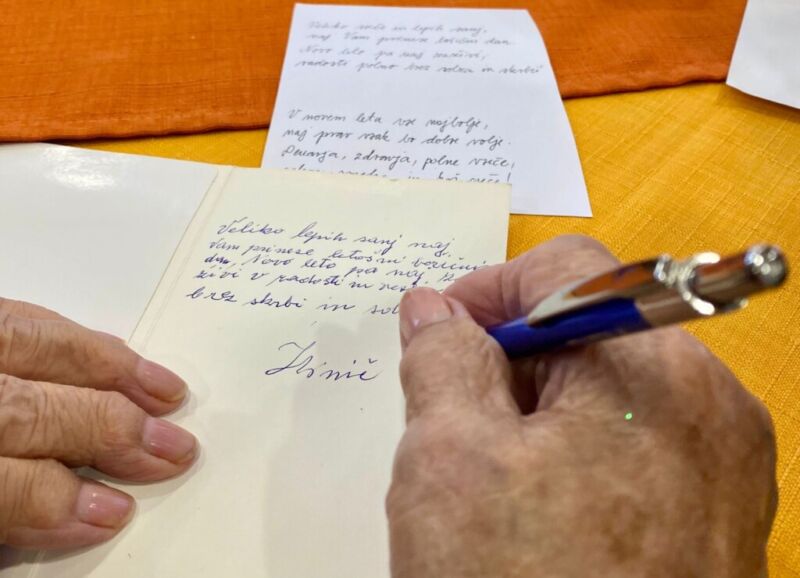 Veliko sreče in lepih sanj,
naj Vam prinese božični dan.
Novo leto pa naj
radosti polno brez solza in skrbi
V novem letu vse najbolje,
naj prav vsak bo dobre volje.
Denarja, zdravja, polne vreče,
Veliko lepih sanj naj
Vam prinese letošnji božični
dan. Novo leto pa naj
živi v radosti in
brez skrbi in